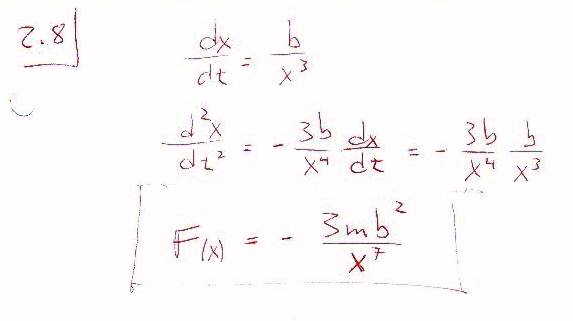 2.8
dx/dt = b/x³
d²x/dt² = - 3b/x⁴ dx/dt = - 3b/x⁴ b/x³
F(x) = - 3mb²/x⁷